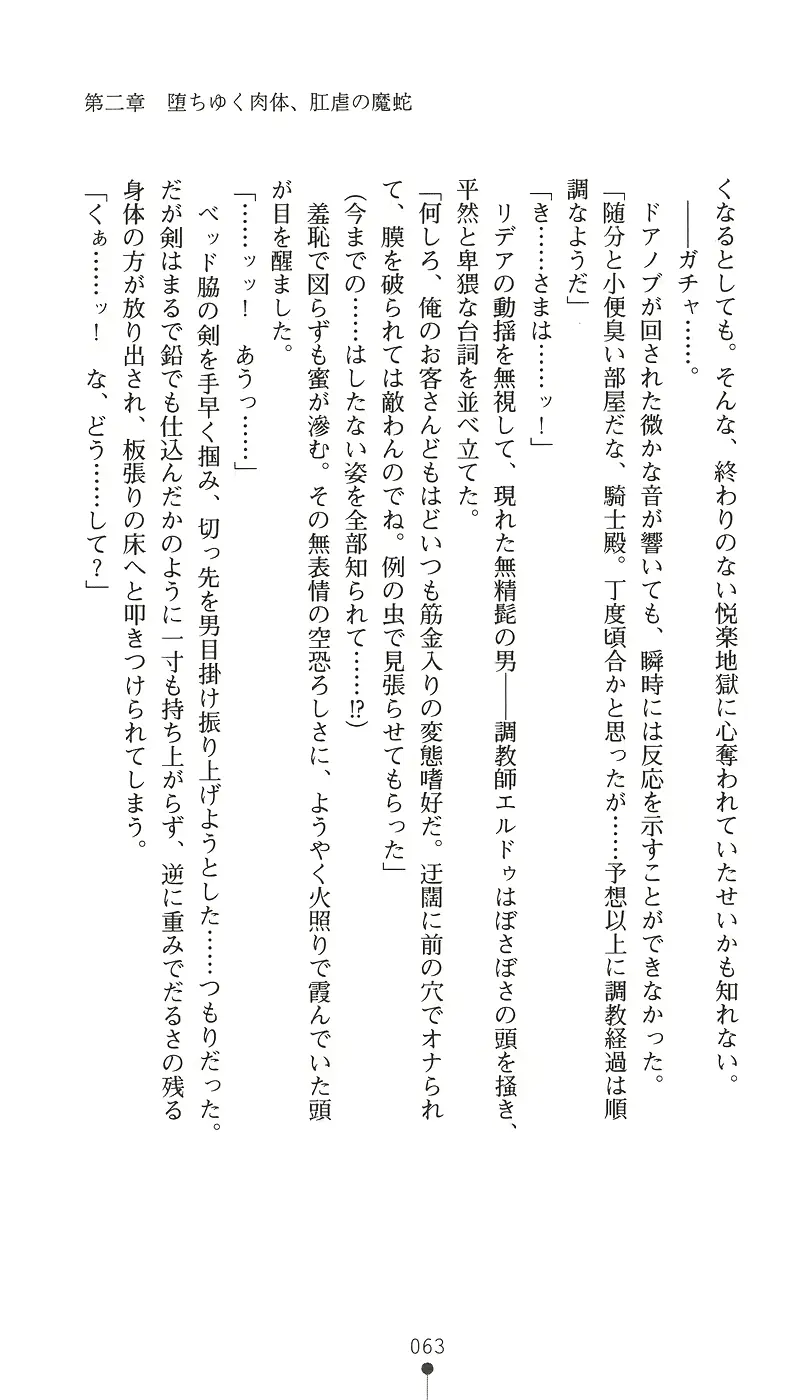 第二章　堕ちゆく肉体、肛虐の魔蛇
くなるとしても。そんな、終わりのない悦楽地獄に心奪われていたせいかも知れない。
――ガチャ……。
ドアノブが回された微かな音が響いても、瞬時には反応を示すことができなかった。
「随分と小便臭い部屋だな、騎士殿。丁度頃合かと思ったが……予想以上に調教経過は順
調なようだ」
「き……さまは……ッ！」
リデアの動揺を無視して、現れた無精髭の男――調教師エルドゥはぼさぼさの頭を掻き、
平然と卑猥な台詞を並べ立てた。
「何しろ、俺のお客さんどもはどいつも筋金入りの変態嗜好だ。迂闊に前の穴でオナられ
て、膜を破られては敵わんのでね。例の虫で見張らせてもらった」
（今までの……はしたない姿を全部知られて……!?）
羞恥で図らずも蜜が滲む。その無表情の空恐ろしさに、ようやく火照りで霞んでいた頭
が目を醒ました。
「……ッッ！　あうっ……」
ベッド脇の剣を手早く掴み、切っ先を男目掛け振り上げようとした……つもりだった。
だが剣はまるで鉛でも仕込んだかのように一寸も持ち上がらず、逆に重みでだるさの残る
身体の方が放り出され、板張りの床へと叩きつけられてしまう。
「くぁ……ッ！　な、どう……して？」
063